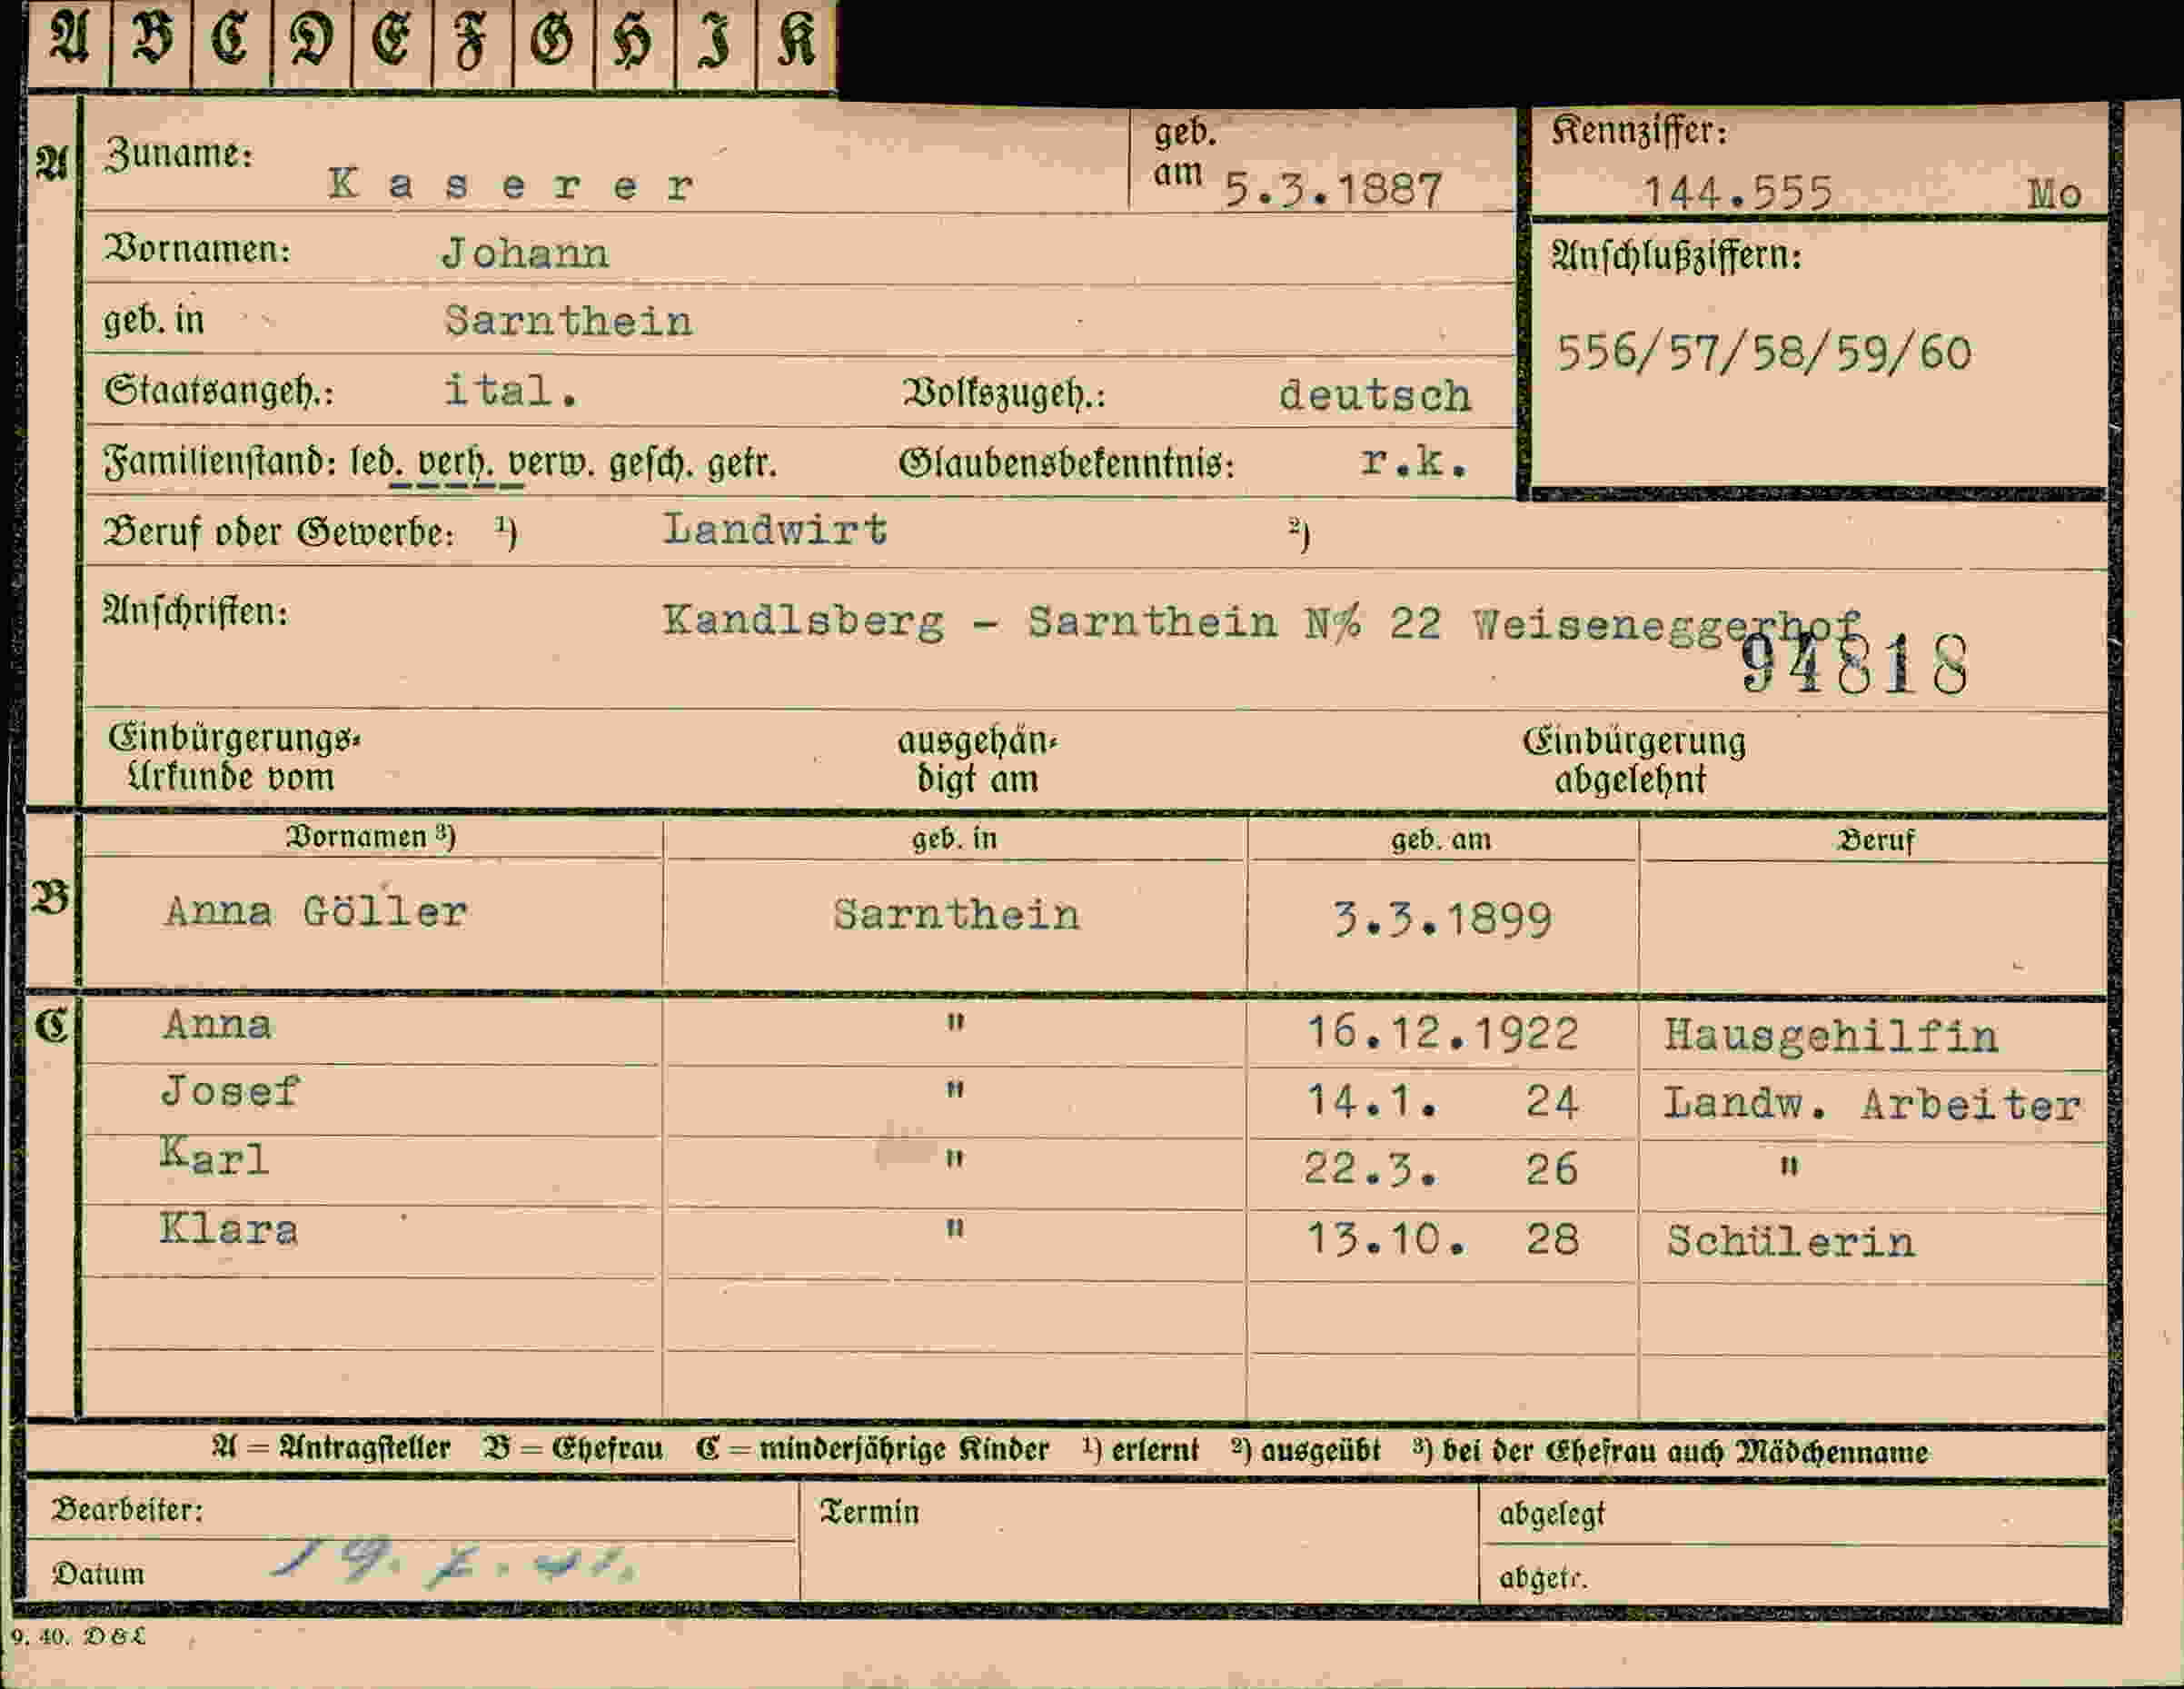 A B C D E F G H I K
A Zuname: Kaserer geb. am 5.3.1887 Kennziffer: 144.555 Mo
Vornamen: Johann Anschlußziffern:
geb. in Sarnthein 556/57/58/59/60
Staatsangeh.: ital. Volkszugeh.: deutsch
Familienstand: led. verh. verw. gesch. getr. Glaubensbekenntnis: r.k.
Beruf oder Gewerbe: ¹) Landwirt ²)
Anschriften: Kandlsberg - Sarnthein N% 22 Weiseneggerhof
94818
Einbürgerungs- ausgehän- Einbürgerung
Urkunde vom digt am abgelehnt
Vornamen ³) geb. in geb. am Beruf
B Anna Göller Sarnthein 3.3.1899
C Anna " 16.12.1922 Hausgehilfin
Josef " 14.1. 24 Landw. Arbeiter
Karl " 22.3. 26 "
Klara " 13.10. 28 Schülerin
A = Antragsteller B = Ehefrau C = minderjährige Kinder ¹) erlernt ²) ausgeübt ³) bei der Ehefrau auch Mädchenname
Bearbeiter: Termin abgelegt
Datum 19. 7. 41. abgetr.
9. 40. D & L